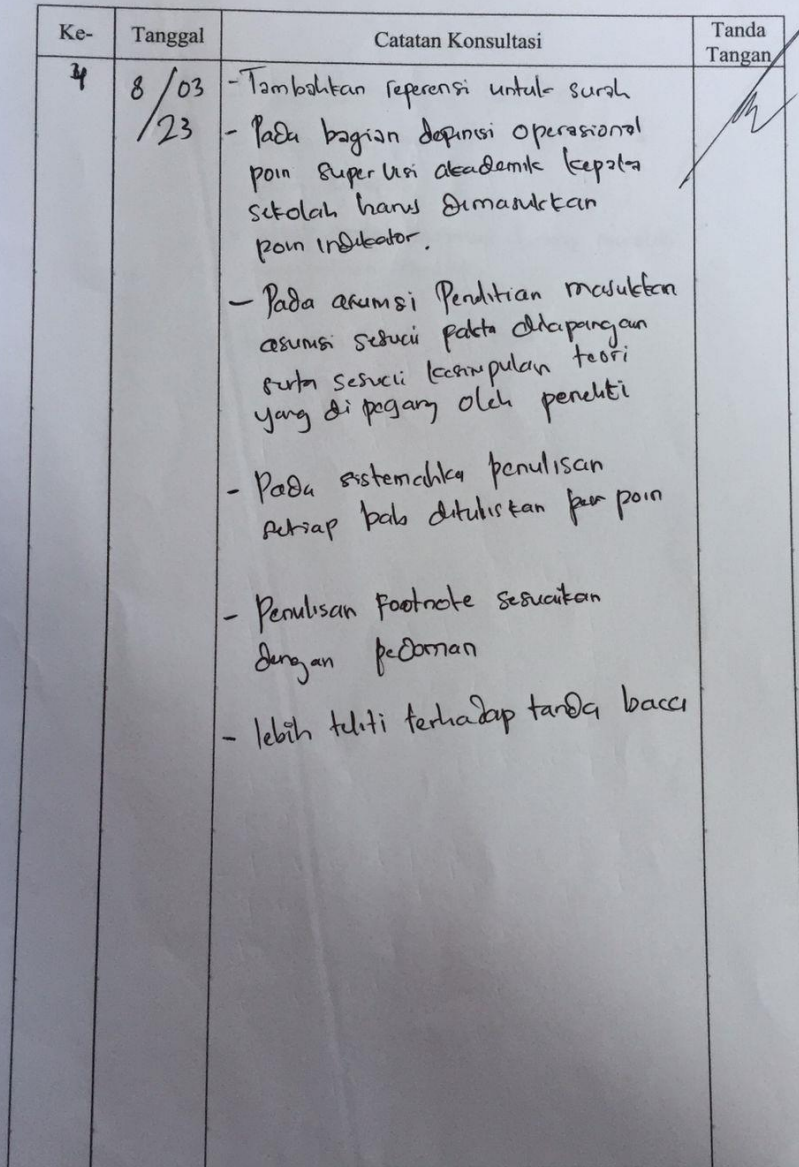 Ke-
Tanggal
Catatan Konsultasi
Tanda
Tangan
8/03
/23
- Tambahkan referensi untuk surah
- Pada bagian depinisi operasional
poin supervisi akademik kepala
sekolah harus dimasukkan
poin indikator.
- Pada asumsi Penelitian masukkan
asumsi sesuai pakta dilapangan
serta sesuai kesimpulan teori
yang di pegang oleh peneliti
- Pada sistematika penulisan
setiap bab dituliskan per poin
- Penulisan Footnote sesuaikan
dengan pedoman
- lebih teliti terhadap tanda baca